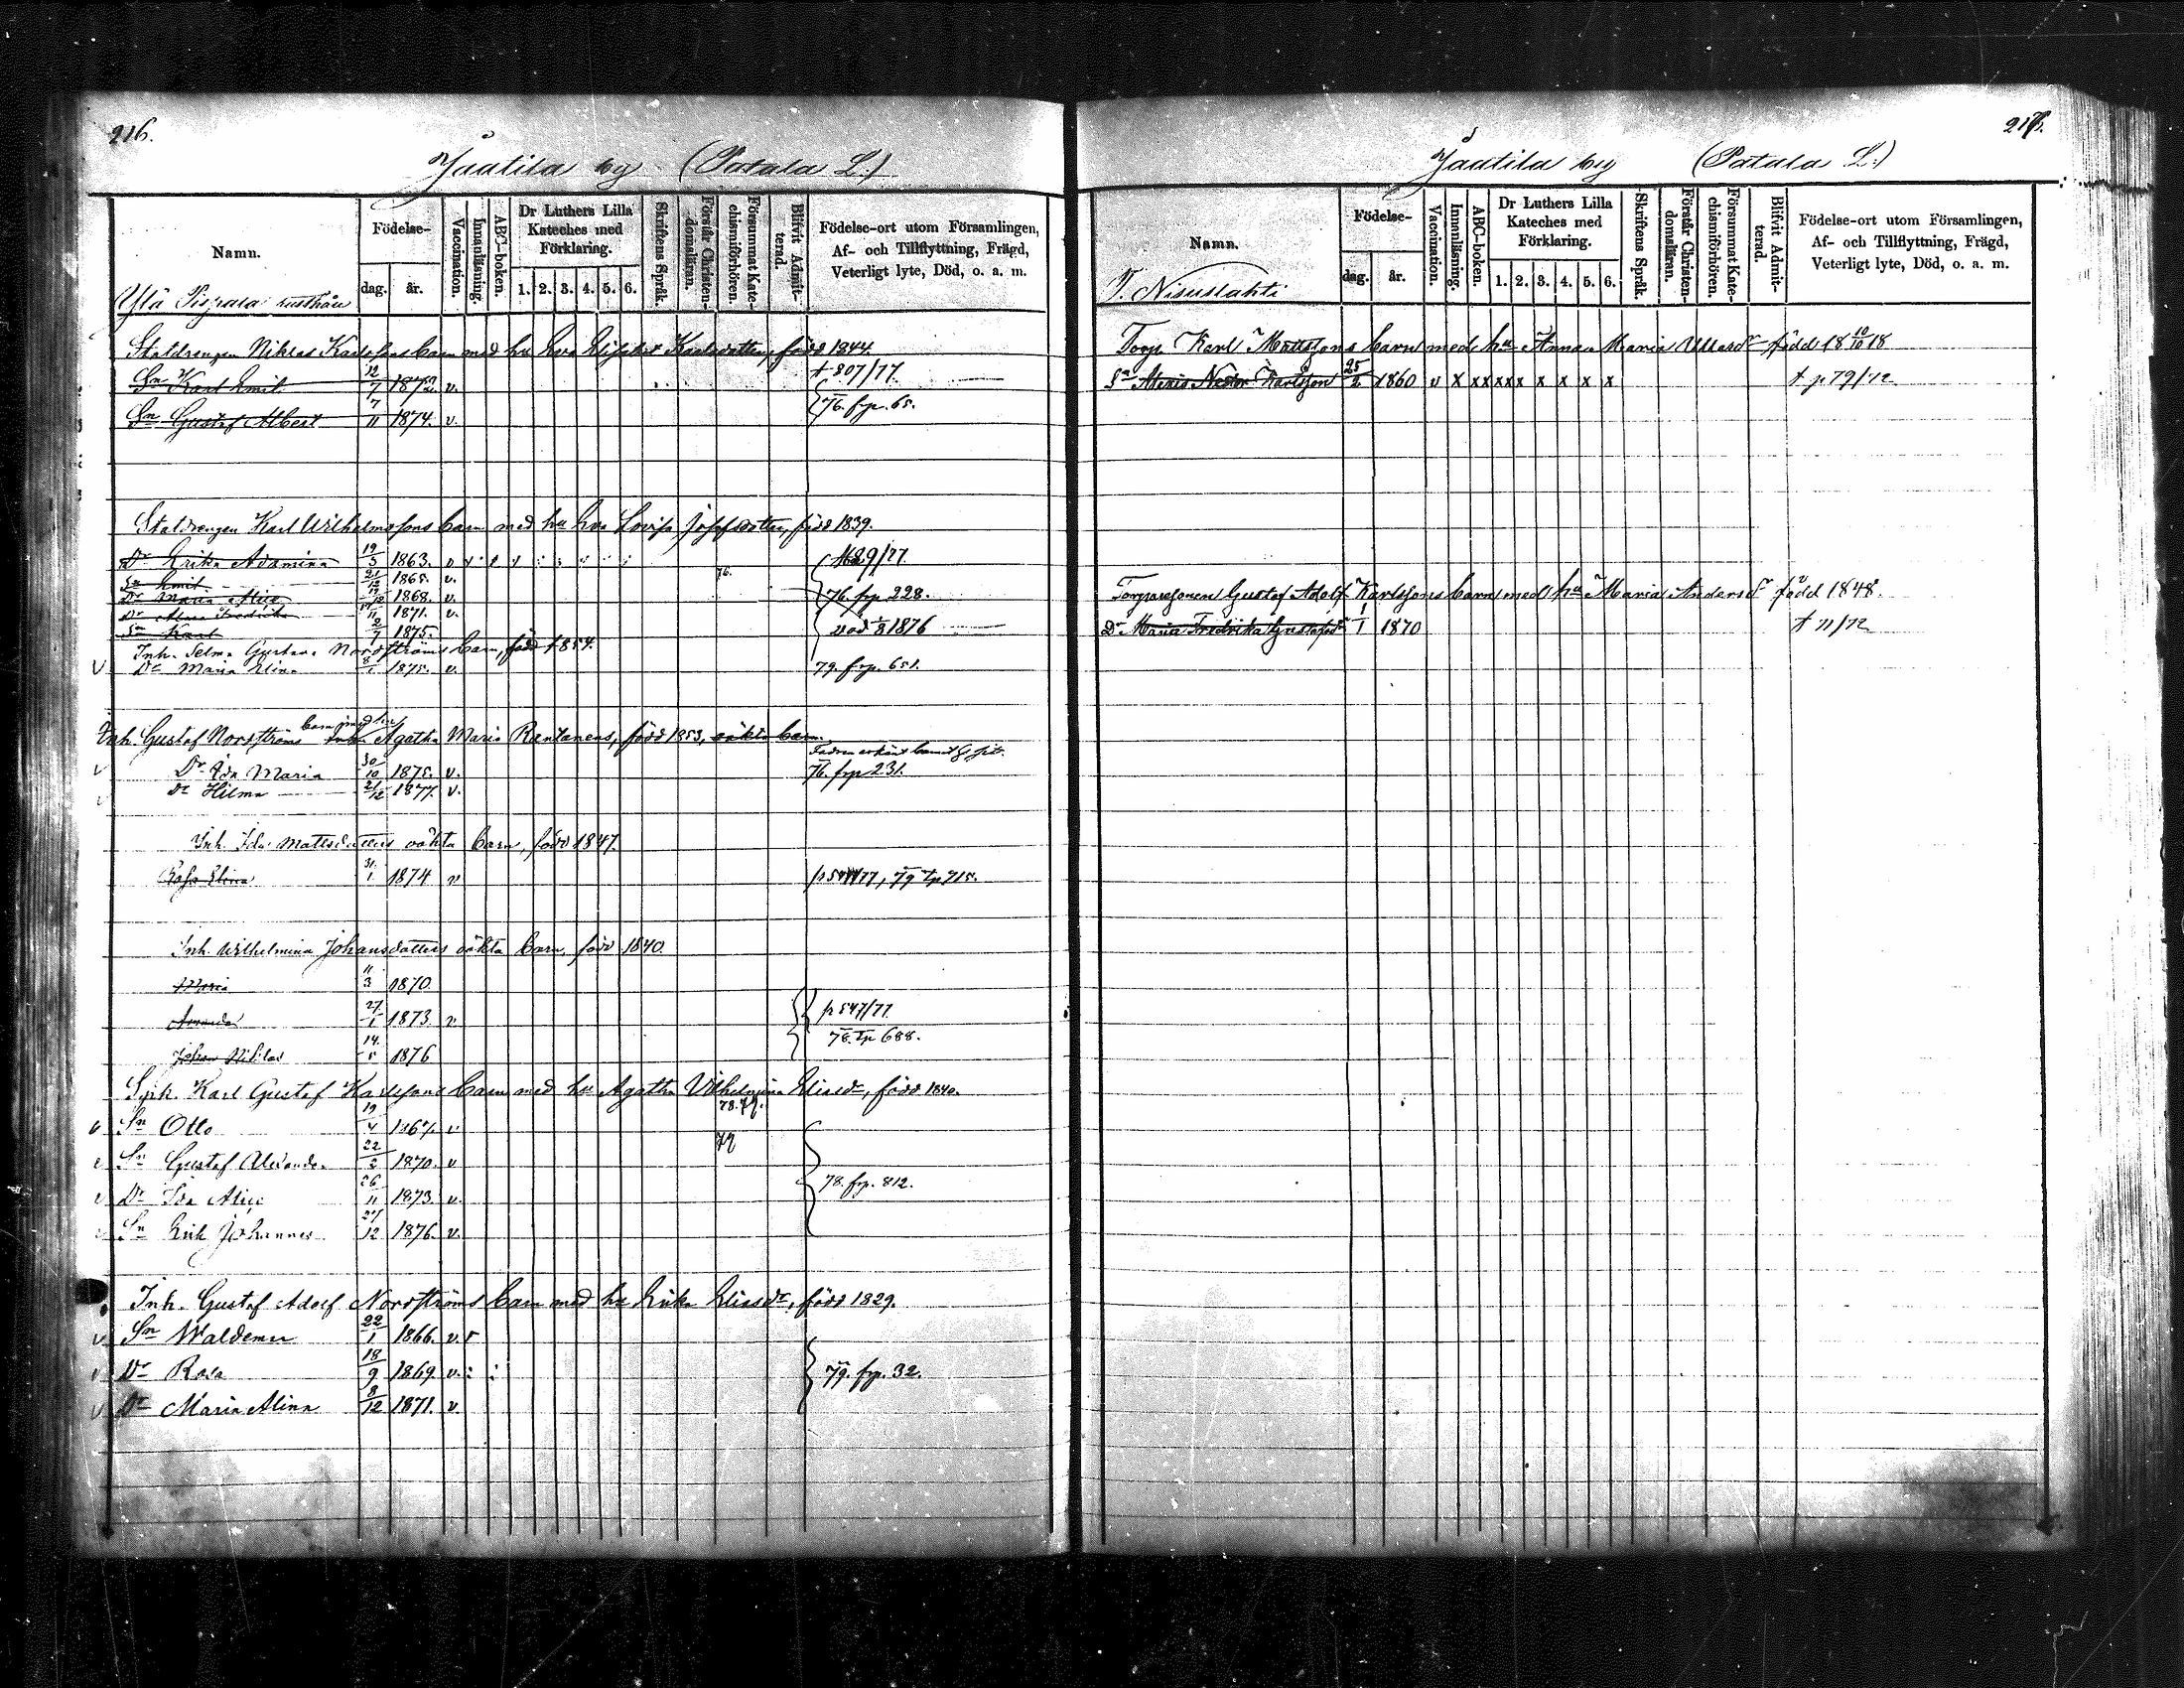 216.
Jäätilä by (Patala L.)
Namn.
Födelse-
dag. år.
Vaccination.
Innanläsning.
ABC-boken.
Dr Luthers Lilla Kateches med Förklaring.
1. 2. 3. 4. 5. 6.
Skriftens Språk.
Förstår Christendomsläran.
Försummat Katechismiförhören.
Blifvit Admitterad.
Födelse-ort utom Församlingen, Af- och Tillflyttning, Frägd, Veterligt lyte, Död, o. a. m.
Ylä Pispala rusthåll
Staldrengen Niklas Karlssons barn med hu Eva Lisa Karlsdotter, född 1844.
Sn Karl Emil 12/7 1872. v. † 807/77
Sn Gustaf Albert 7/11 1874. v. 76. frp. 65.
Staldrengen Karl Wilhelmssons barn med hu Eva Lovisa Josefsdotter, född 1839.
Dr Erika Adamina 19/3 1863. v
Sn Emil 21/12 1865. v. 76.
Dr Maria Alisa 1868. v. 76. frp 228.
Dr Alma Fredrika 1871. v.
Sn Karl 2/7 1875. död 1/8 1876
Inh. Selma Gustava Nordströms barn, född 1854.
v Dr Maria Elina 8/1 1875. v. 79. frp. 651.
Inh. Gustaf Nordströms barn med Agatha Maria Rantanens, född 1853, oäkta barn.
v Dr Ida Maria 30/10 1875. v. 76. frp 231.
Dr Hilma 21/12 1877. v.
Inh. Ida Mattsdotters oäkta barn, född 1847.
Rosa Elina 31/1 1874 v 79 tp 715.
Inh. Wilhelmina Johansdotters oäkta barn, född 1840.
Maria 11/3 1870.
Amanda 27/1 1873. v p 547/77
78. tp 688.
Johan Nikolas 14/5 1876
Karl Gustaf Karlssons barn med hu Agatha Vilhelmina Eliasdr, född 1840.
78. 79.
v Sn Otto 19/4 1867. v
79
v Sn Gustaf Alexander 22/2 1870. v
78. frp. 812.
v Dr Ida Alisa 26/11 1873 v.
Sn Erik Johannes 27/12 1876. v.
Inh. Gustaf Adolf Nordströms barn med hu Erika Eliasdr, född 1829.
v Sn Waldemar 22/1 1866. v.
v Dr Rosa 18/9 1869. v. 79. frp. 32.
v Dr Maria Alina 8/12 1871. v.
217.
Jäätilä by (Patala L.)
Namn.
Födelse-
dag. år.
Vaccination.
Innanläsning.
ABC-boken.
Dr Luthers Lilla Kateches med Förklaring.
1. 2. 3. 4. 5. 6.
Skriftens Språk.
Förstår Christendomsläran.
Försummat Katechismiförhören.
Blifvit Admitterad.
Födelse-ort utom Församlingen, Af- och Tillflyttning, Frägd, Veterligt lyte, Död, o. a. m.
T. Nisuslahti
Torp. Karl Mattssons barn med hu Anna Maria född 18 10/10 18
Sn Alexis Nestor Karlsson 25/2 1860 v x x x x x x x x x † p 79/72
Torparesonen Gustaf Adolf Karlssons barn med hu Maria Andersdr född 1848.
Dr Maria Fredrika Gustafsdr 1/1 1870 † 11/72